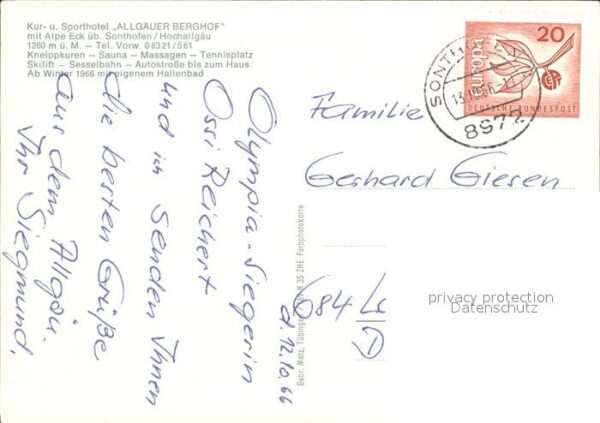 Kur- u. Sporthotel „ALLGÄUER BERGHOF"
mit Alpe Eck üb. Sonthofen / Hochallgäu
1260 m ü. M. – Tel. Vorw. 08321/561
Kneippkuren – Sauna – Massagen – Tennisplatz
Skilift – Sesselbahn – Autostraße bis zum Haus
Ab Winter 1966 mit eigenem Hallenbad
d. 12.10.66
Olympia-Siegerin
Ossi Reichert
und ich senden Ihnen
die besten Grüße
aus dem Allgäu.
Ihr Siegmund.
Gebr. Metz, Tübingen
35 ZHE Farbphotokarte
europa
20
CEPT
DEUTSCHE BUNDESPOST
SONTHOFEN
8972
Familie
Gerhard Giesen
684
privacy protection
Datenschutz